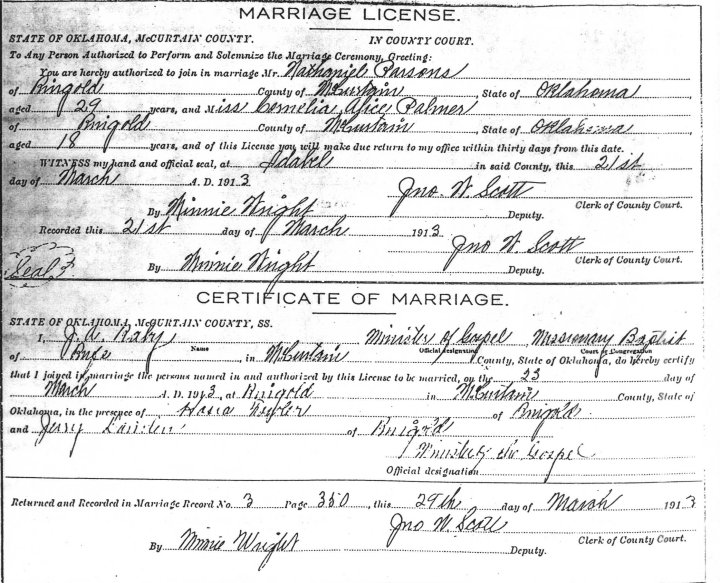 MARRIAGE LICENSE.
STATE OF OKLAHOMA, McCURTAIN COUNTY. IN COUNTY COURT.
To Any Person Authorized to Perform and Solemnize the Marriage Ceremony, Greeting:
You are hereby authorized to join in marriage Mr. Nathaniel Parsons
of Ringold County of McCurtain, State of Oklahoma
aged 29 years, and Miss Cornelia Alice Palmer
of Ringold County of McCurtain, State of Oklahoma
aged 18 years, and of this License you will make due return to my office within thirty days from this date.
WITNESS my hand and official seal, at Idabel in said County, this 21st
day of March A. D. 1913 Jno. W. Scott
Clerk of County Court.
By Minnie Wright Deputy.
Recorded this 21st day of March 1913
Jno W. Scott
Clerk of County Court.
Seal By Minnie Wright Deputy.
CERTIFICATE OF MARRIAGE.
STATE OF OKLAHOMA, McCURTAIN COUNTY, SS.
I, J. A. Minister of Gospel Missionary Baptist
Name Official designating Court or Congregation
of Rufe, in McCurtain County, State of Oklahoma, do hereby certify
that I joined in marriage the persons named in and authorized by this License to be married, on the 23 day of
March A. D. 1913, at Ringold in McCurtain County, State of
Oklahoma, in the presence of of Ringold
and Jerry of Ringold
Minister of Gospel
Official designation
Returned and Recorded in Marriage Record No. 3 Page 350, this 29th day of March 1913
Jno W. Scott
Clerk of County Court.
By Minnie Wright Deputy.